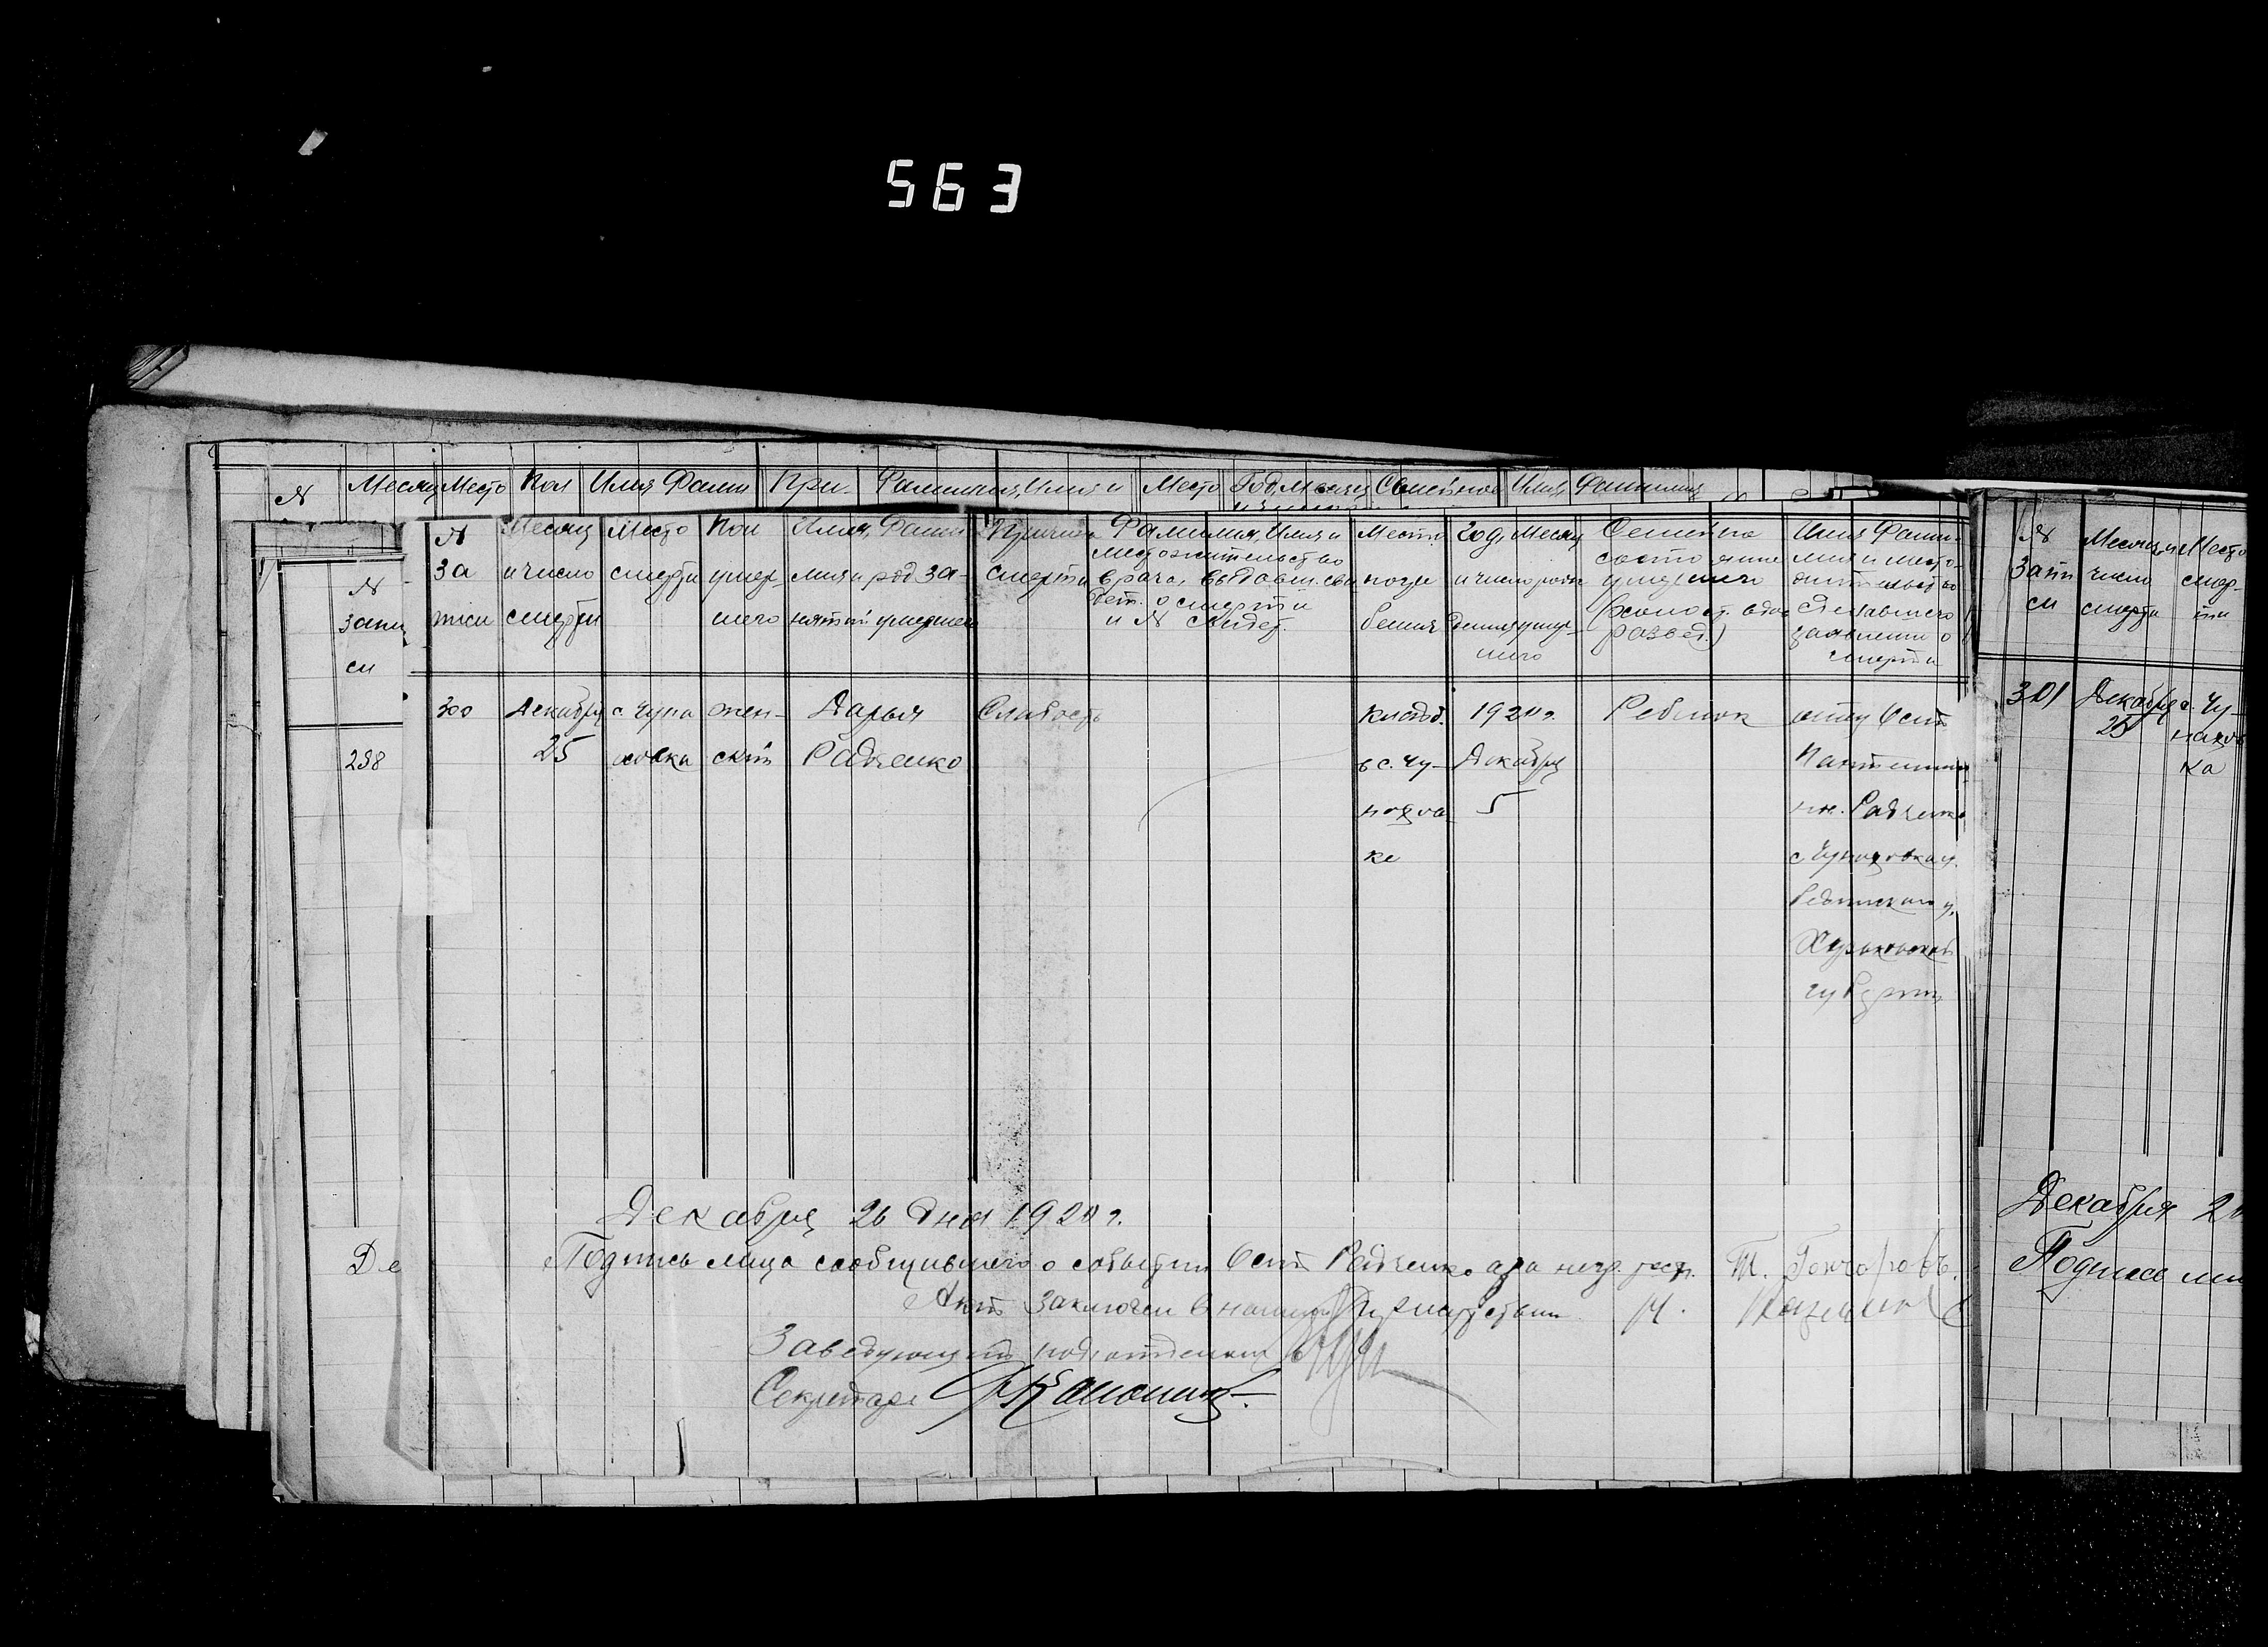 563
№ Месяц Место Пол Имя Фами При- Фамилия, Имя и Место Год, Месяц Семейное Имя, Фамилия
№
запи
си
298
Де
№ за писи
Месяц и число смерти
Место смерти
Пол умер- шего
Имя, Фами- лия и род за- нятий умершего
Причина смерти
Фамилия, Имя и
местожительство
врача, выдавш. сви
дет. о смерти
и №
Место погре бения
Год, Месяц и число рож дения умер- шего
Семейное
состояние
умершего
(холост. вдов
развед.)
Имя Фами-
лия и место-
жительство
сделавшего
заявление о
смерти
300 Декабря с. Чупа жен- Дарья Слабость кладб. 1920 г. Ребенок отец
25 ховка ский Радченко в с. Чу- Декабря
5 Радченко
ке
Харьковской
губернии
Декабря 26 дня 1920 г.
Подпись лица сообщившего о событии Радченко а за негр. расп. Т. Гончаровъ.
Акт заключен в нашем присутствии
Заведующий подотделом
Секретарь
№
Запи
си
Месяц и
число
смерти
Место
смер-
ти
301 Декабря с. Чу-
25
ка
Декабря 2
Подпись ли